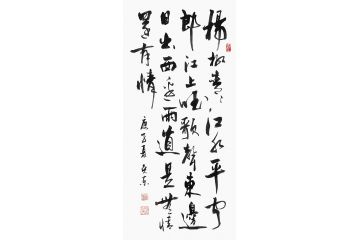 楊柳青青江水平聞
郎江上唱歌聲東邊
日出西邊雨道是無情
還有情